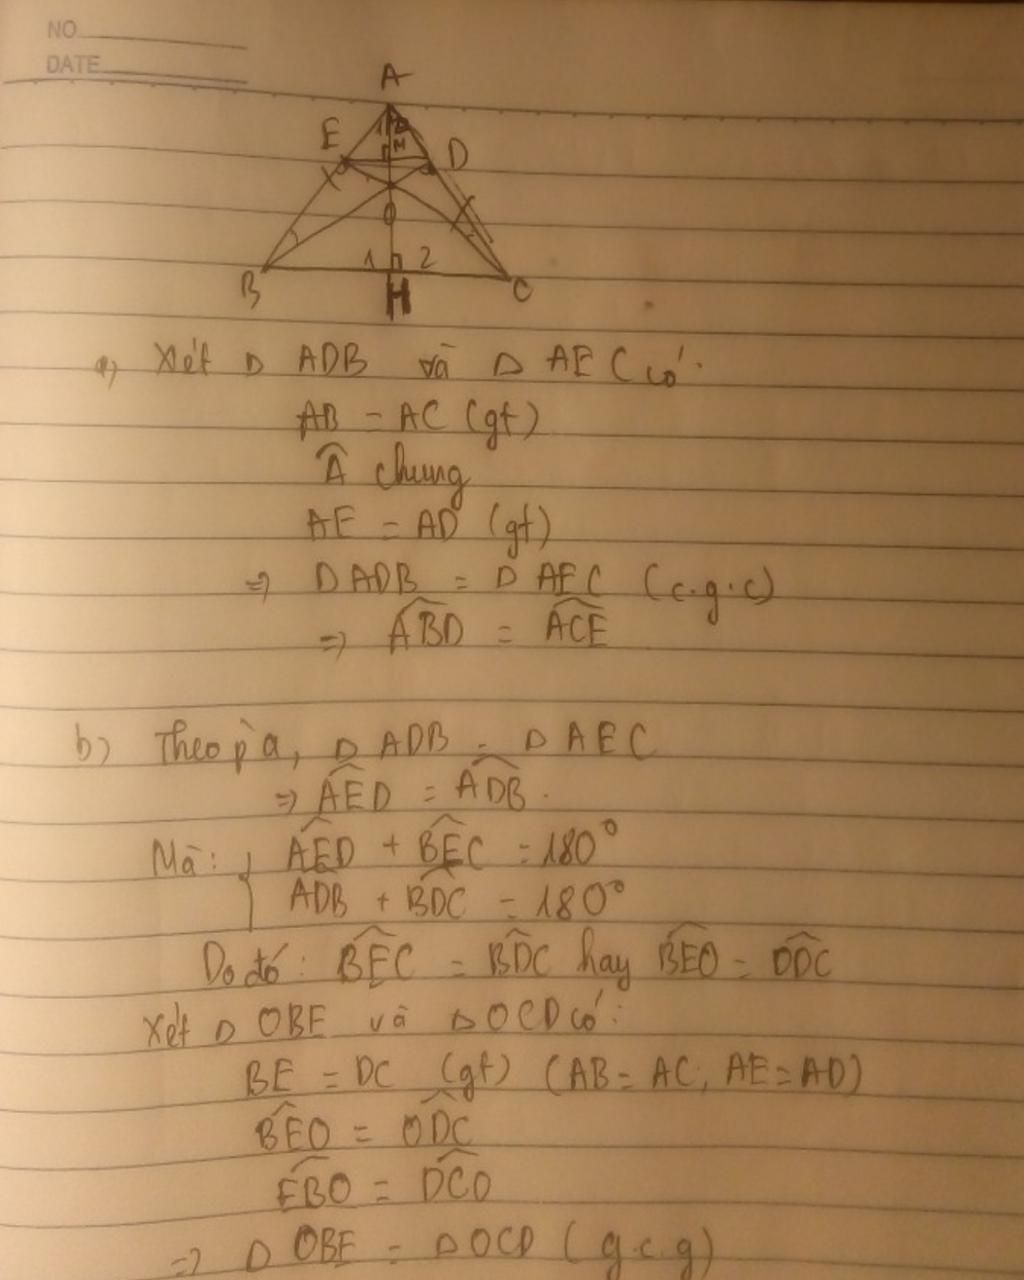 NO
DATE
A
1 2
E M D
O
1 2
B H C
a) Xét Δ ADB và Δ AEC có:
AB = AC (gt)
Â chung
AE = AD (gt)
=> Δ ADB = Δ AEC (c.g.c)
=> ABD = ACE
b) Theo p a, Δ ADB = Δ AEC
=> AED = ADB.
Mà: { AED + BEC = 180°
ADB + BDC = 180°
Do đó: BEC = BDC hay BEO = ODC
Xét Δ OBE và Δ OCD có:
BE = DC (gt) (AB = AC, AE = AD)
BEO = ODC
EBO = DCO
=> Δ OBE = Δ OCD (g.c.g)